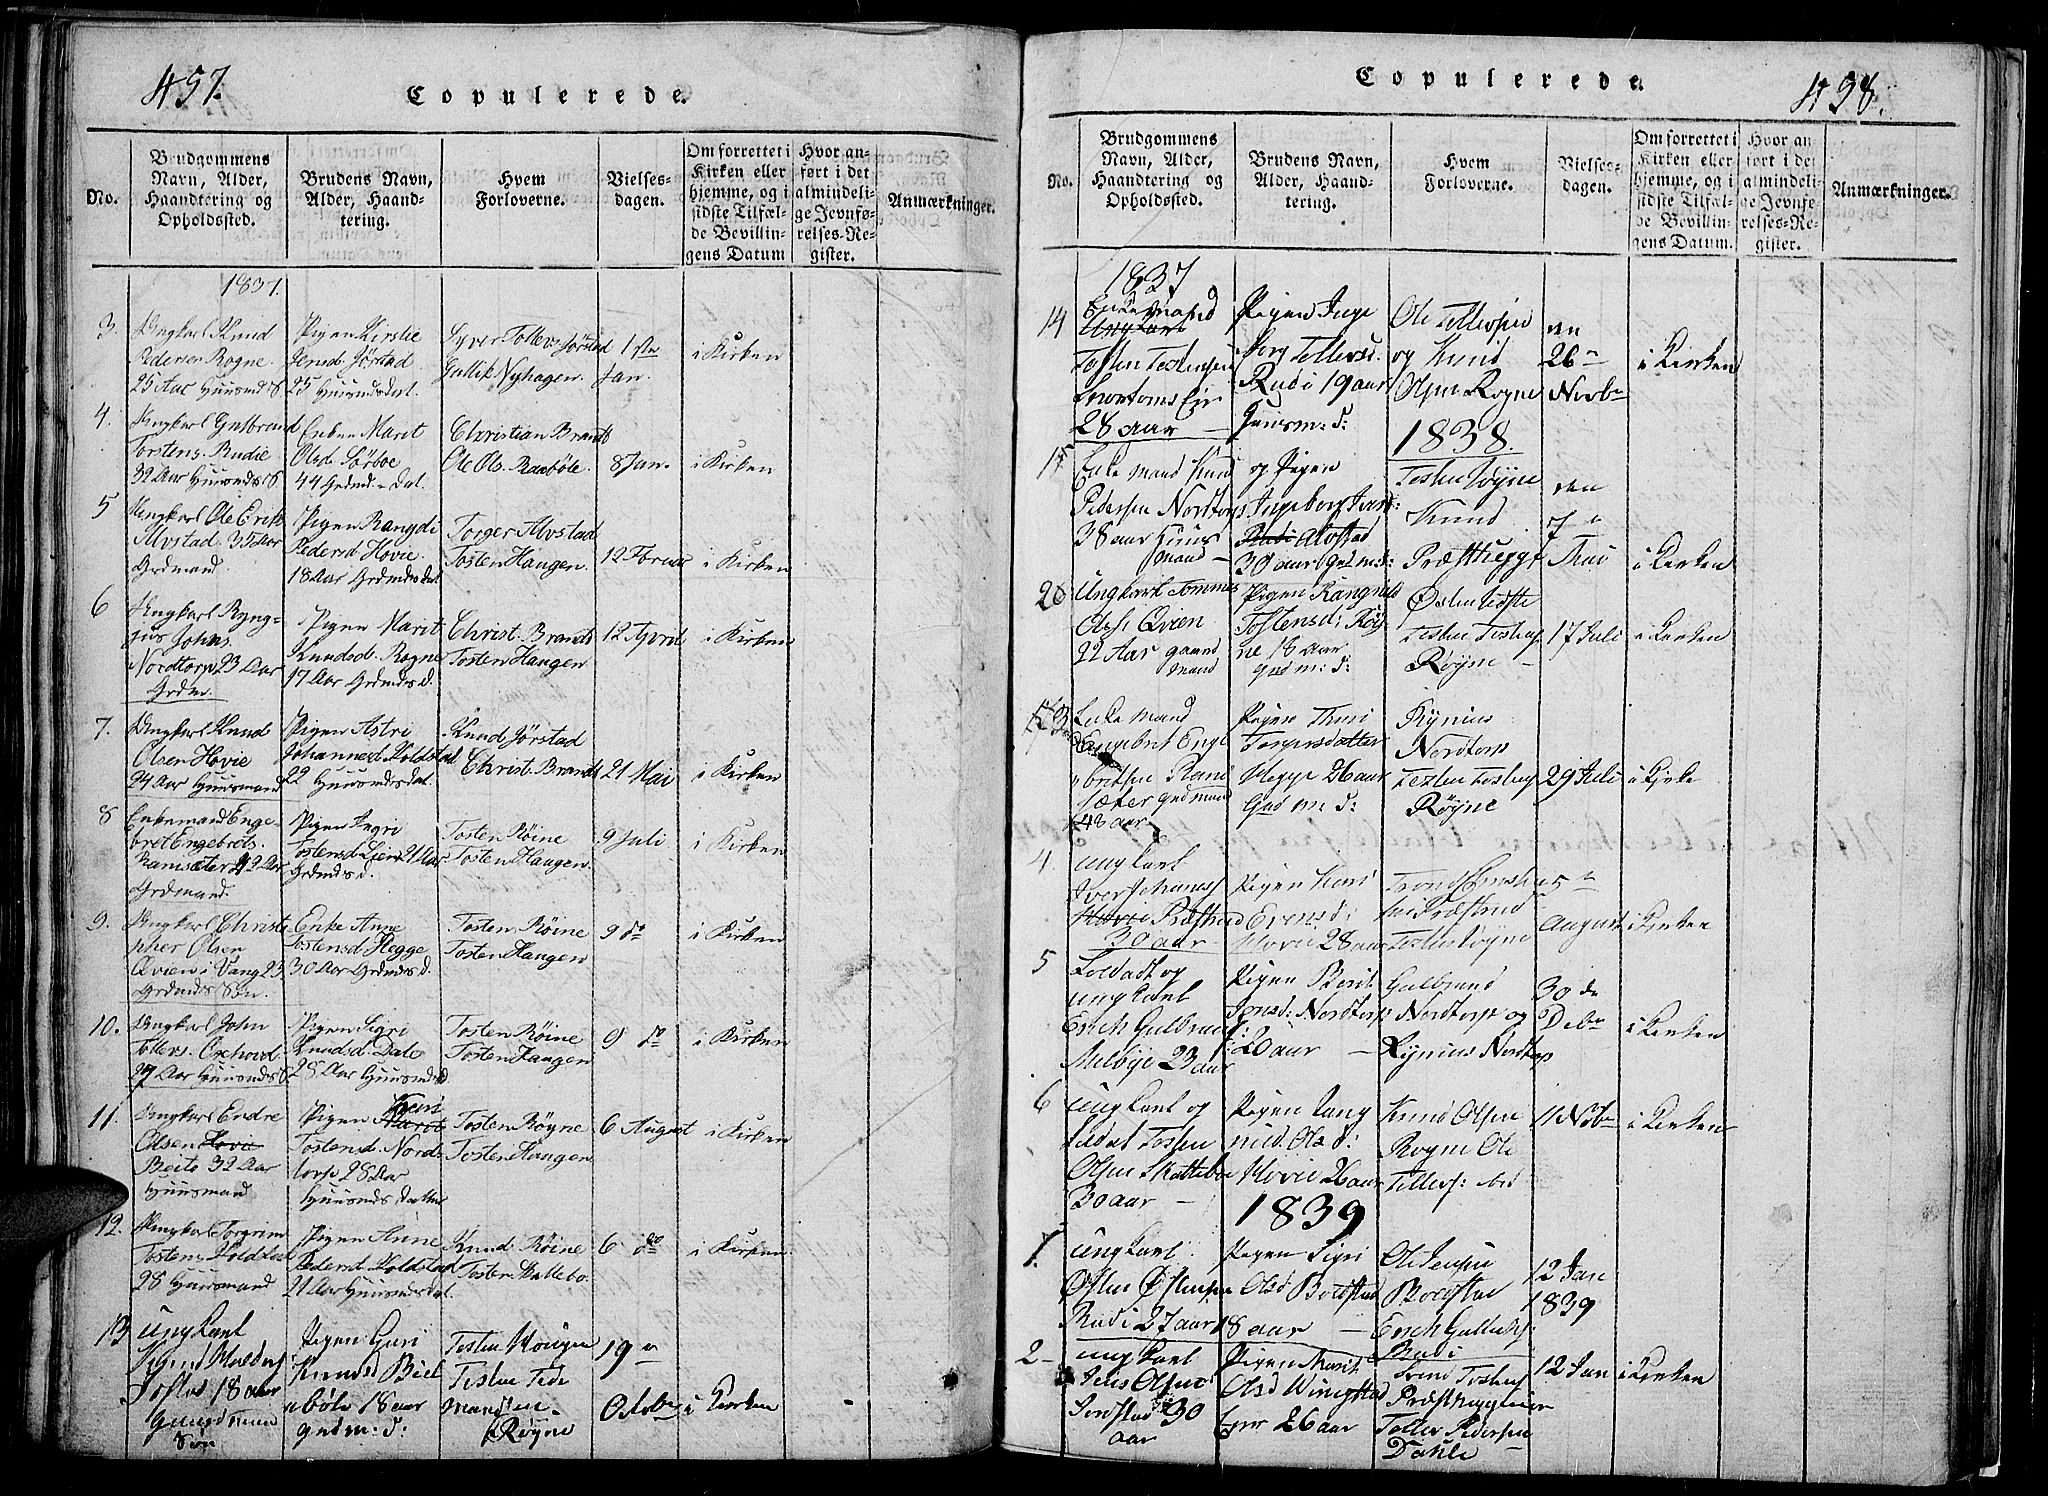 457.
Copulerede.
No.
Brudgommens
Navn, Alder,
Haandtering og
Opholdssted.
Brudens Navn,
Alder, Haand-
tering.
Hvem
Forloverne.
Vielses-
dagen.
Om forrettet i
Kirken eller
hjemme, og i
sidste Tilfæl-
de Bevillin-
gens Datum
Hvor an-
ført i det
almindeli-
ge Jevnfø-
relses-Re-
gister.
Anmærkninger.
1837.
3.
Ungkarl Knud
Pedersen Rogne
25 Aar Huusmds S.
Pigen Kirstie
Jensd. Jørstad
25 Huusmds Dat.
Syver Tollevs. Jørstad
Gullik Nyhagen.
1ste
Jan.
i Kirken
4.
Ungkarl Gulbrand
Torstens. Rudie
32 Aar Huusmds S.
Enken Marit
Olsd. Sørboe
44 Grdmd. Dat.
Christian Brandt
Ole Ols. Rasbøle.
8 Jan.
i Kirken
5
Ungkarl Ole Erik
Alvstad. 35 Aar
Grdmand.
Pigen Rangdi
Pedersd Hovie.
18 Aar Grdmds Dat
Torger Alvstad
Tosten Haugen.
12 Februar
i Kirken
6
Ungkarl Ryng-
jus Johns.
Nordtorp 23 Aar
Grdm.
Pigen Marit
Knudsd. Rogne
17 Aar Grdmds d.
Christ. Brandt
Tosten Haugen
12 April
i Kirken
7.
Ungkarl Knud
Olsen Hovie
24 Aar Huusmand
Pigen Astri
Johannesd. Koldstad
22 Huusmds Dat.
Knud Jørstad
Christ. Brandt
21 Mai
i Kirken
8
Enkemand Enge-
bret Engebrets.
Ramsæter 42 Aar
Grdmand.
Pigen Ingri
Tostensd. Lien 21 Aar
Grdmds d.
Tosten Röine
Tosten Haugen.
9 Juli
i Kirken
9.
Ungkarl Christo
pher Olsen
Qvien i Vang 23
Grdmds Søn.
Enke Anne
Tostensd. Hegge
30 Aar Grdmds D.
Tosten Röine
Tosten Haugen
9 do
i Kirken
10.
Ungkarl John
Tollevs.
27 Aar Huusmds S.
Pigen Sigri
Knudsd. Dale
25 Aar Huusmds d.
Tosten Röine
Tosten Haugen
9 do
i Kirken
11.
Ungkarl Endre
Olsen Hovie
Beito 32 Aar
Huusmand
Pigen Kari
Tostensd. Nord-
torp 28 Aar
Huusmds Datter
Tosten Røyne
Tosten Haugen
6 August
i Kirken
12.
Ungkarl Torgrim
Tostens. Koldstad
28 Huusmand
Pigen Anne
Pedersd. Koldstad
21 Aar Huusmds Dat.
Knud Röine
Tosten Skattebo.
6 do
i Kirken
13
ungkarl
18 aar
Gaardmans
Søn
Pigen Guri
Knudsd Biel
bøle 18 aar
grdm: d:
Tosten Haugen
Tosten
Røyne
19
Octobr
i Kirken
Copulerede.
498.
No.
Brudgommens
Navn, Alder,
Haandtering og
Opholdssted.
Brudens Navn,
Alder, Haand-
tering.
Hvem
Forloverne.
Vielses-
dagen.
Om forrettet i
Kirken eller
hjemme, og i
sidste Tilfæl-
de Bevillin-
gens Datum.
Hvor an-
ført i det
almindeli-
ge Jevnfø-
relses-Re-
gister.
Anmærkninger.
1837
14
Enkemand
Ungkarl
Tosten Tostensen
28 aar
Pigen Inge
borg Tollevsd.
Rudi 19 aar
Huusm: d:
Ole Tollevsen
og Knud
Olsen Rogne
den
26
Novbr
i Kirken
1838.
15
Enke mand Knud
Pedersen Nordtorp
38 aar Huus
mand
og Pigen
Ingeborg
Rudi Alvstad
30 aar grdmd:
Tosten Røyne
Knud
Præsthegge
den
7
Mai
i Kirken
20
Ungkarl Tommes
Ols: Qvien
22 Aar gaard
mand
Pigen Rangnild
Tostensd: Røy
ne 18 aar
grd m: d:
Østen
Tosten Tostens
Røyne
17 Juli
i Kirken
3
Enke mand
Engebret Enge
britsen Ram
sæter grdmand
48 aar
Pigen Thuri
Torgersdatter
Hegge 26 aar
Grd m: d:
Rynius
Nordtorp
Tosten Tostens
Røyne
29 Juli
i Kirke
4
ungkarl
Iver Johanss
Hovie Præsthrud
30 aar
Pigen Kari
Evensd:
Hovie 28 aar
Trond
Præstrud
Tosten Røyne
5
August
i Kirken
5
Soldadt og
ungkarl
Erich Gulbrands
Melbye 23 aar
Pigen Berit
Jonsd: Nordtorp
20 aar
Gulbrand
Nordtorp og
Rynius Nordtorp
30 de
Debr
i Kirken
6
ungkarl og
Soldat Tosten
Olsen Skattebo
30 aar
Pigen Rang
nild. Ols d:
Hovie 26 aar
Knud Olsen
Rogne Ole
Tollefs:
11 Nobr
i Kirken
1839
1.
ungkarl
Østen Østensen
Rudi 27 aar
Pigen Sigri
Olsd Bordstad
18 aar
Ole Jensen
Bordstad
Erich Gulliks:
Rudi
12 Jan
1839
2
ungkarl
Jens Olsen
Jordstad 30
aar
Pigen Marit
Olsd Wingstad
26 aar
Svend Tostens
Præsthægge
Tollef Pedersen
Dahle
12 Jan
i Kirken